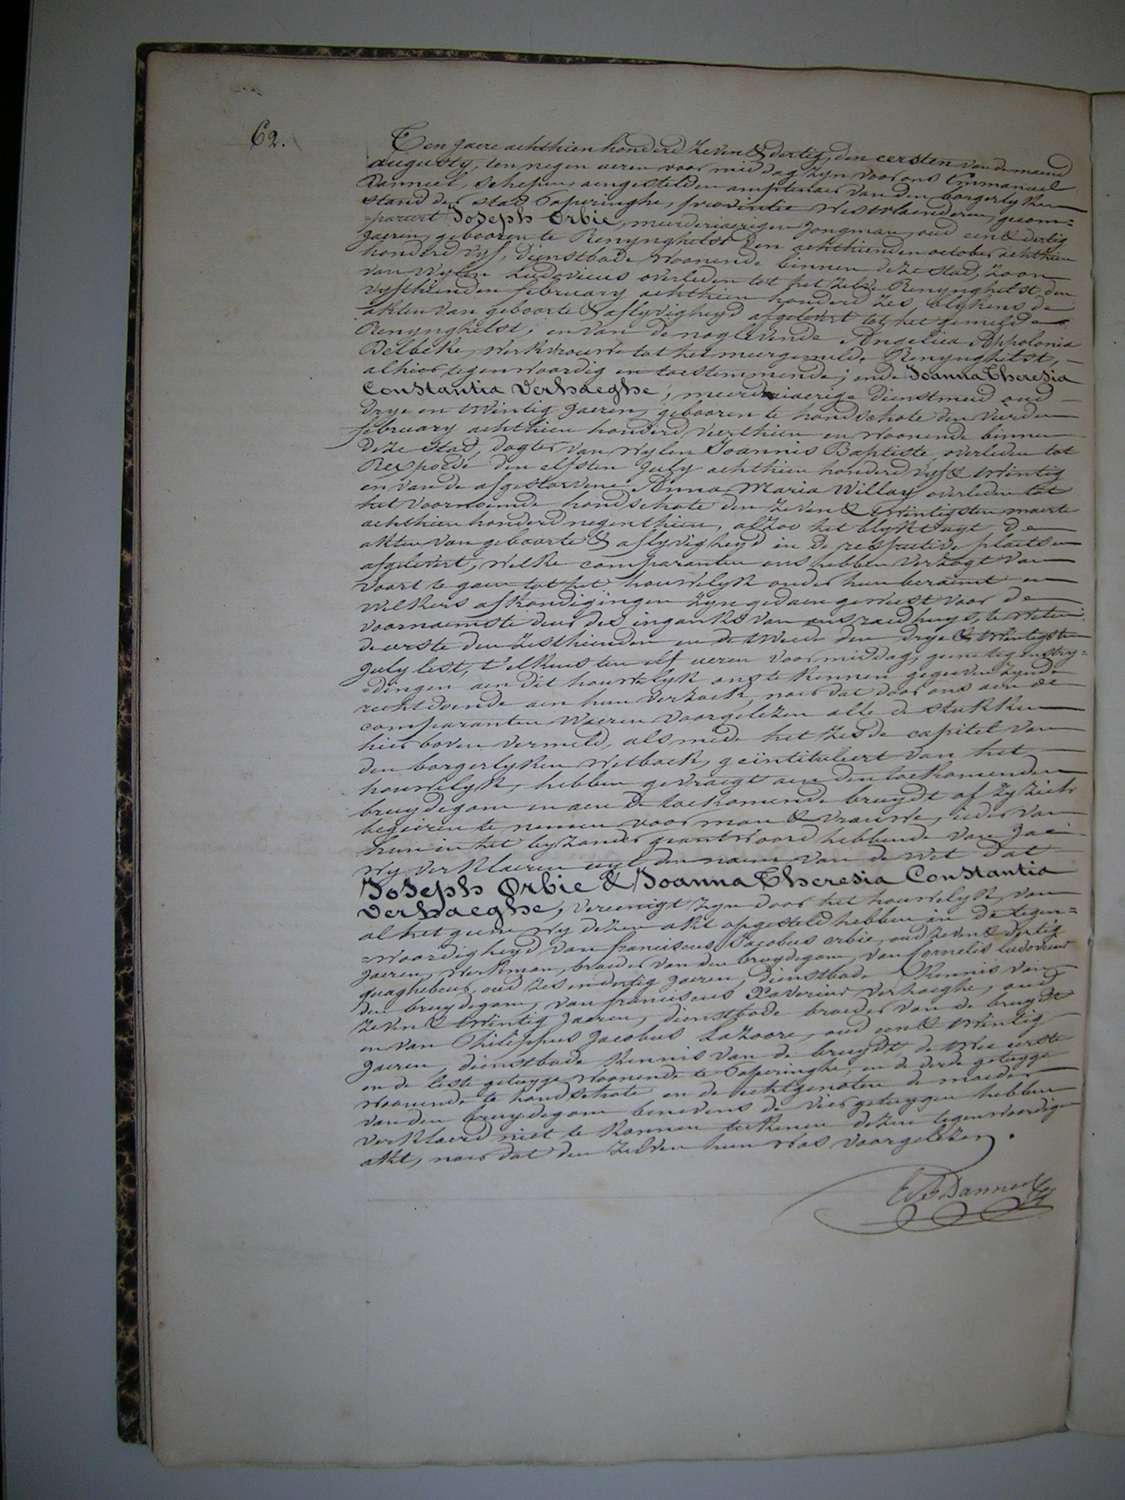 62.
Ten jaere achthien honderd zeven & dertig, den eersten van de maend
augusty, ten negen ueren voor middag zyn voor ons Emmanuel
Danneel, schepen, aengestelden amptenaer van den borgerlyken
stand der stad Poperinghe, provintie Westvlaenderen, gecom=
=pareert Joseph Orbie, meerderjaerigen jongman, oud een & dertig
jaeren, gebooren te Renynghelst den achthienden october achthien
honderd vyf, dienstbode woonende binnen deze stad, zoon
van wylen Ludovicus overleden tot het zelve Renynghelst den
vyfthienden february achthien honderd zes, blykens de
akten van geboorte & aflyvigheyd afgelevert tot het gemelde
Renynghelst; en van de naglevende Angelica Appolonia
Delbeke, werkvrouwe tot het meergemelde Renynghelst,
alhier tegenwoordig en toestemmende; ende Joanna Theresia
Constantia Verhaeghe, meerderjaerige dienstmeid oud
drye en twintig jaeren, gebooren te hondschote den vierden
february achthien honderd veerthien en woonende binnen
deze stad, dogter van wylen Joannis Baptiste, overleden tot
Rexpoede den elfsten July achthien honderd vyf & twintig
en van de afgestorvene Anna Maria Willay overleden tot
het voornoemde hondschote den zeven & twintigsten maerte
achthien honderd negenthien, alzoo het blykt uyt de
akten van geboorte & aflyvigheyd in de respective plaetsen
afgelevert, welke comparanten ons hebben verzogt van
voort te gaen tot het houwelyk onder hun beraemt en
welkers afkondigingen zyn gedaen geweest voor de
voornaemste deur des ingankx van ons raedhuys, te weten:
de eerste den zesthienden en de tweede den drye & twintigsten
July lest, t'elkens ten elf ueren voor middag; geene tegenstry=
=dingen aen dit houwelyk ons te kennen gegeven zynde
rechtdoende aen hun verzoek, naer dat door ons aen de
comparanten waeren voorgelezen alle de stukken
hier boven vermeld, als mede het zesde capitel van
den borgerlyken wetboek, geïntituleert van het
houwelyk, hebben gevraegt aen den toekomenden
bruydegom en aen de toekomende bruydt of zy zich
begeiren te nemen voor man & vrouwe, ieder van
hun in het byzonder geantwoord hebbende van Jae:
wy verklaeren uyt den naem van de Wet dat
Joseph Orbie & Joanna Theresia Constantia
Verhaeghe, vereenigt zyn door het houwelyk, van
al het geene wy dezen akt opgesteld hebben in de tegen=
=woordigheyd van franciscus Jacobus orbie, oud zeven & dertig
jaeren, werkman, broeder van den bruydegom, van Cornelis Ludovicus
quaghebeur, oud zes en dertig jaeren, dienstbode kennis van
den bruydegom, van franciscus Xaverius Verhaeghe, oud
zeven & twintig jaeren, dienstbode broeder van de bruydt
en van Philippus Jacobus Lazoore, oud een & twintig
jaeren, dienstbode kennis van de bruydt de twee eerste
en de leste getuyge woonende te Poperinghe, en de derde getuyge
woonende te hondschote en de echtgenoten de moeder
van den bruydegom benevens de vier getuygen hebben
verklaerd niet te konnen teekenen dezen tegenwoordigen
akt, naer dat den zelven hun was voorgelezen.
Danneel